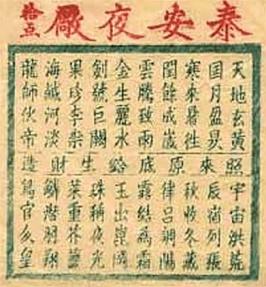 泰安夜廠
拾点
天地玄黃
日月盈昃
寒來暑往
閏餘成歲
雲騰致雨
金生麗水
劍號巨闕
果珍李柰
海鹹河淡
龍師伙帝
照來原底給生財造
宇宙洪荒
辰宿列張
秋收冬藏
律呂調陽
露結為霜
玉出崑岡
珠稱夜光
菜重芥薑
鱗潛羽翔
鳥官人皇